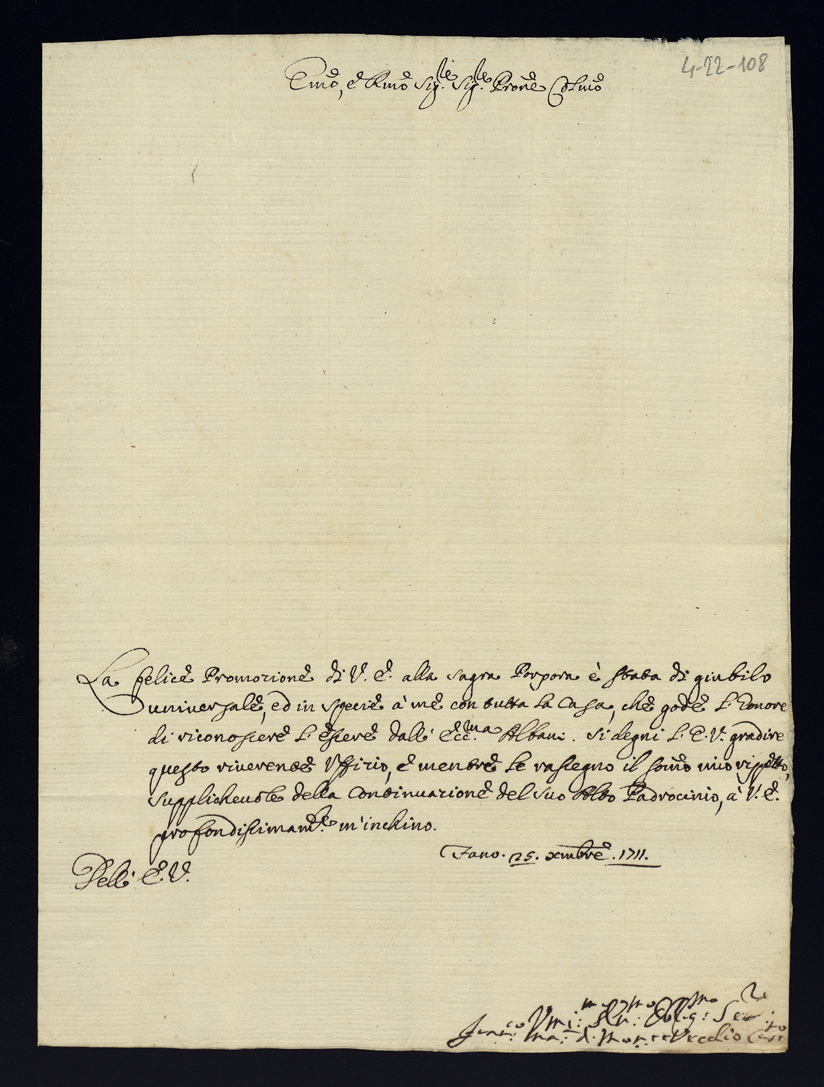 4-22-108
Emō, e Rmō Sigr͞e Sigr͞e Pron͞e Colmō
La felice Promozione di V. E. alla sagra Porpora è stata di giubilo
universale, ed in specie à me con tutta la Casa, che gode l'Honore
di riconoscere l'essere dall' Ecc.ma Albani. Si degni l'E. V. gradire
questo riverente Uffizio, e mentre le rassegno il som̄o mio rispetto,
supplichevole della Continuazione del suo Alto Padrocinio, à V. E.
profondissimam.te m'inchino.
Fano. 25. xmbre. 1711.
Dell' E. V.
Vmi:mo Obblg:mo Ser:re
di Monte Vecchio